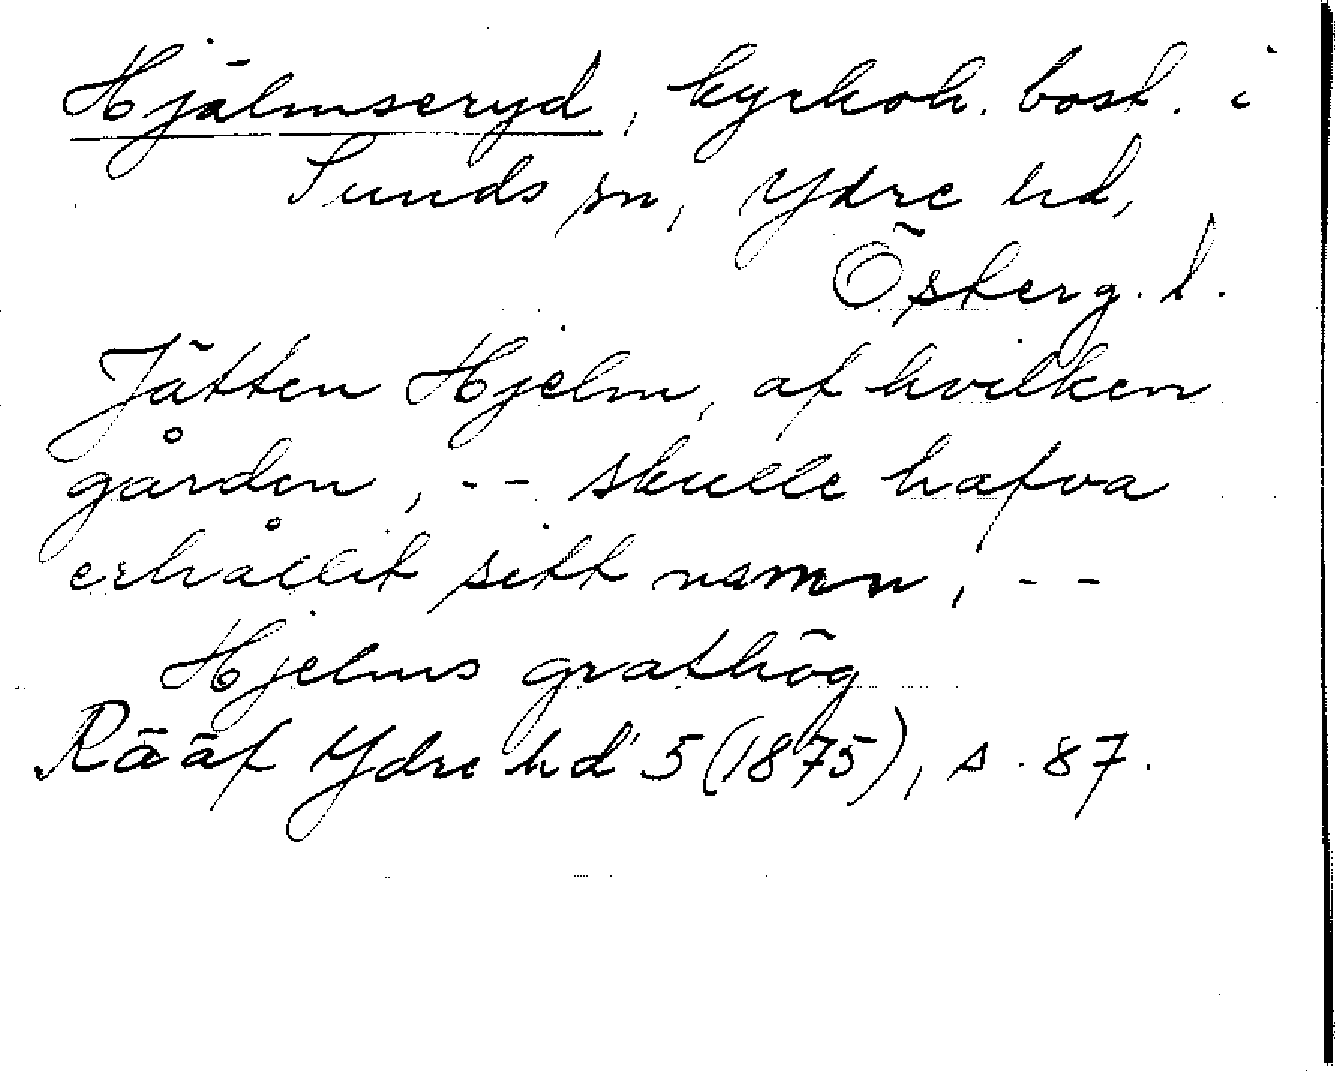 Hjälmseryd, kyrkoh. bost. i
Sunds sn, Ydre hd,
Österg. l.
Jätten Hjelm, af hvilken
gården, -- skulle hafva
erhållit sitt namn, --
Hjelms grafhög
Rääf Ydre hd 5 (1875), s. 87.